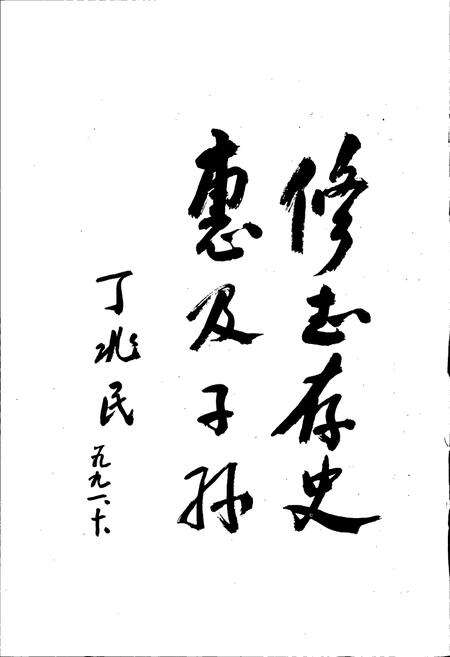 修志存史
惠及子孙
丁兆民
一九九一、十、